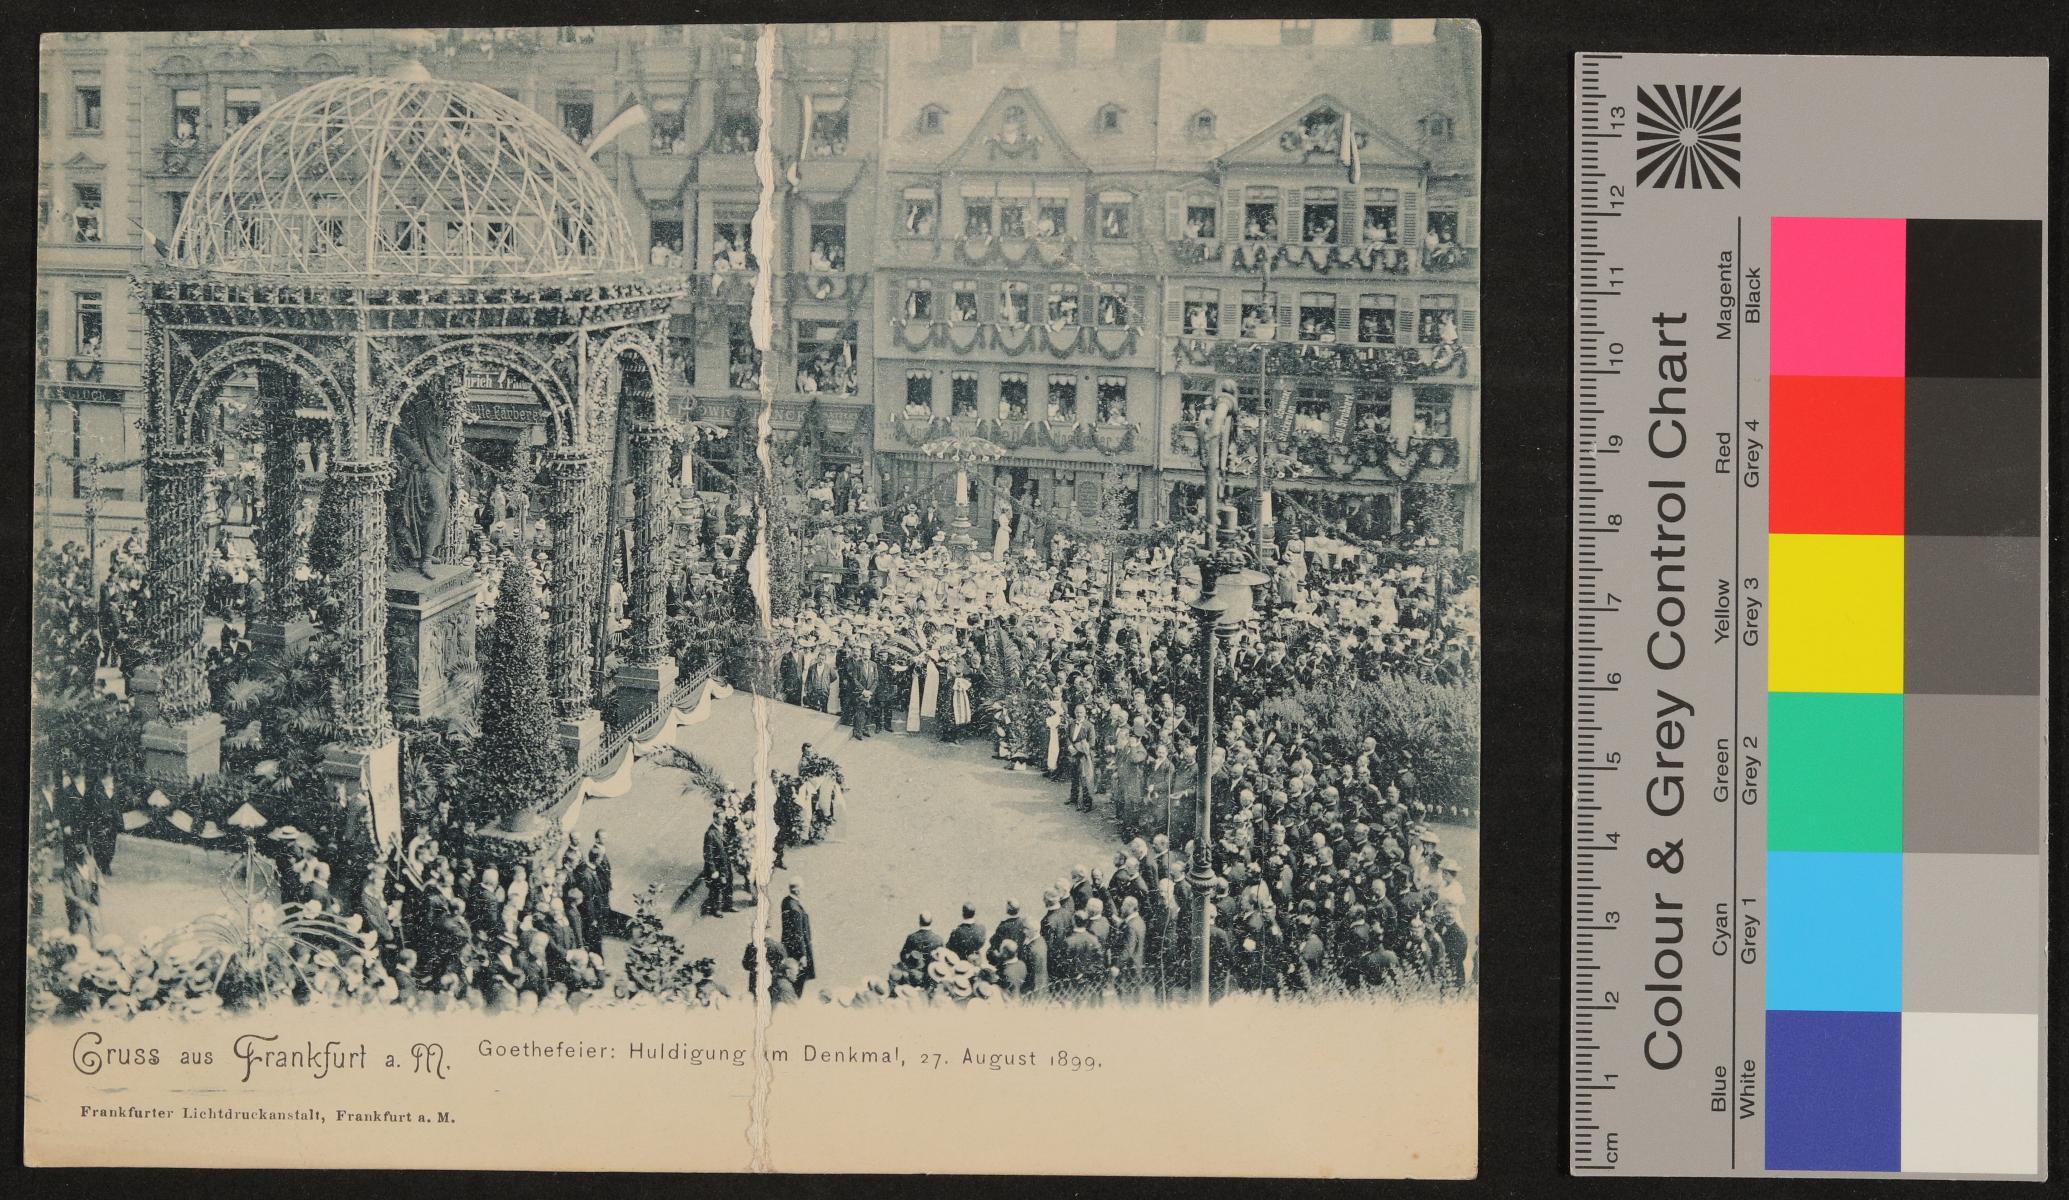 Gruss aus Frankfurt a. M. Goethefeier: Huldigung am Denkmal, 27. August 1899.
Frankfurter Lichtdruckanstalt, Frankfurt a. M.
Colour & Grey Control Chart
Blue Cyan Green Yellow Red Magenta
White Grey 1 Grey 2 Grey 3 Grey 4 Black
cm 1 2 3 4 5 6 7 8 9 10 11 12 13